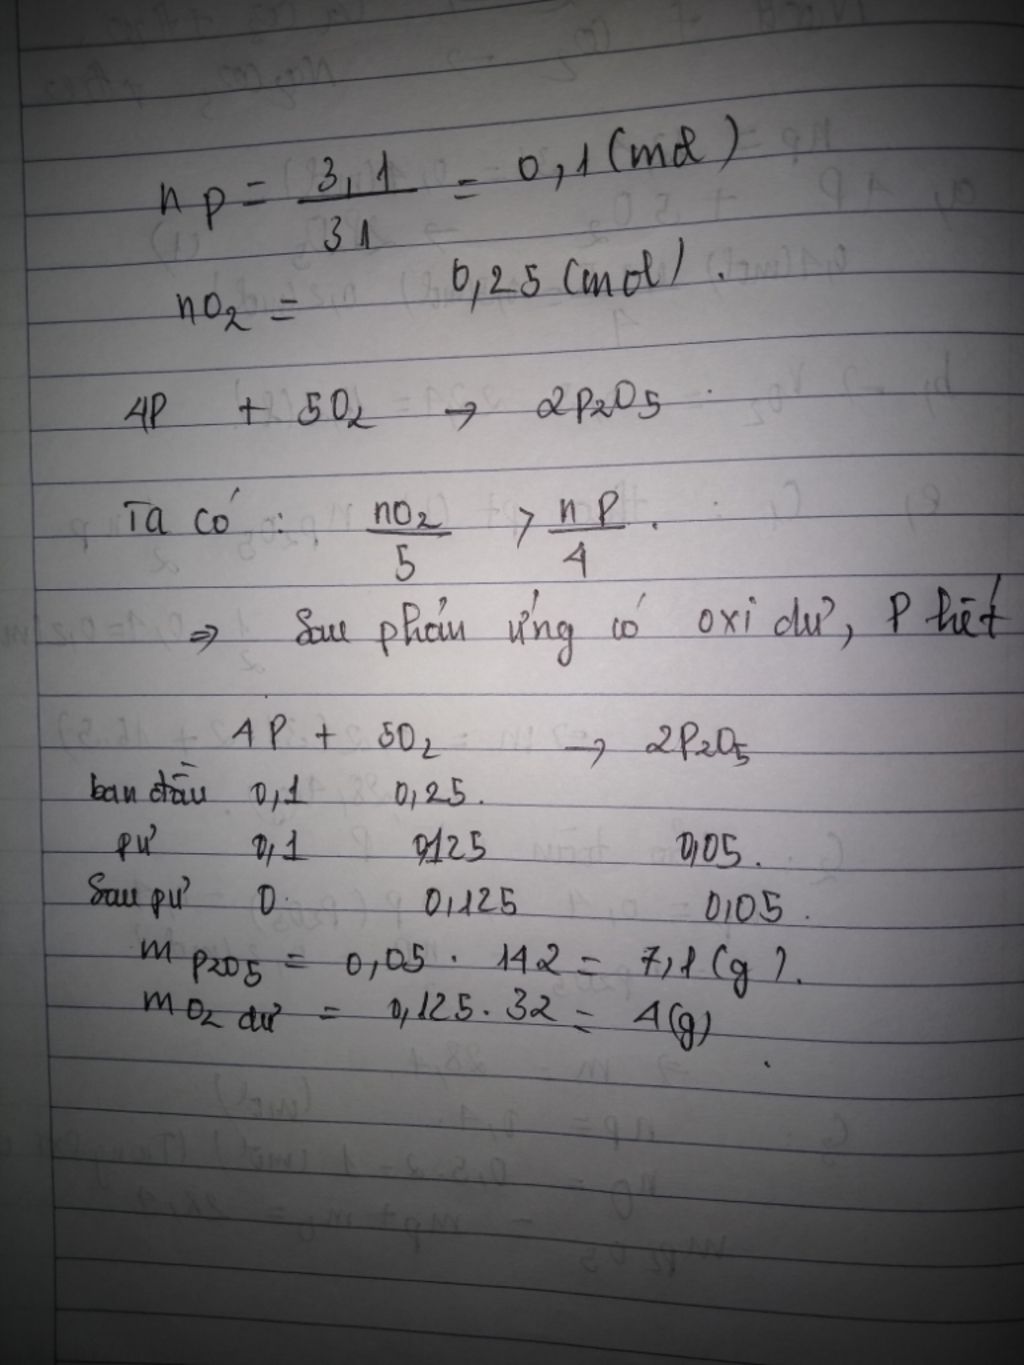 nP = 3,1 / 31 = 0,1 (mol)
nO2 = 0,25 (mol).
4P + 5O2 → 2P2O5
Ta có: nO2 / 5 > nP / 4.
⇒ Sau phản ứng có oxi dư, P hết
4P + 5O2 → 2P2O5
ban đầu 0,1 0,25.
pư 0,1 0,125 0,05.
Sau pư 0 0,125 0,05.
mP2O5 = 0,05 . 142 = 7,1 (g).
mO2 dư = 0,125 . 32 = 4(g)